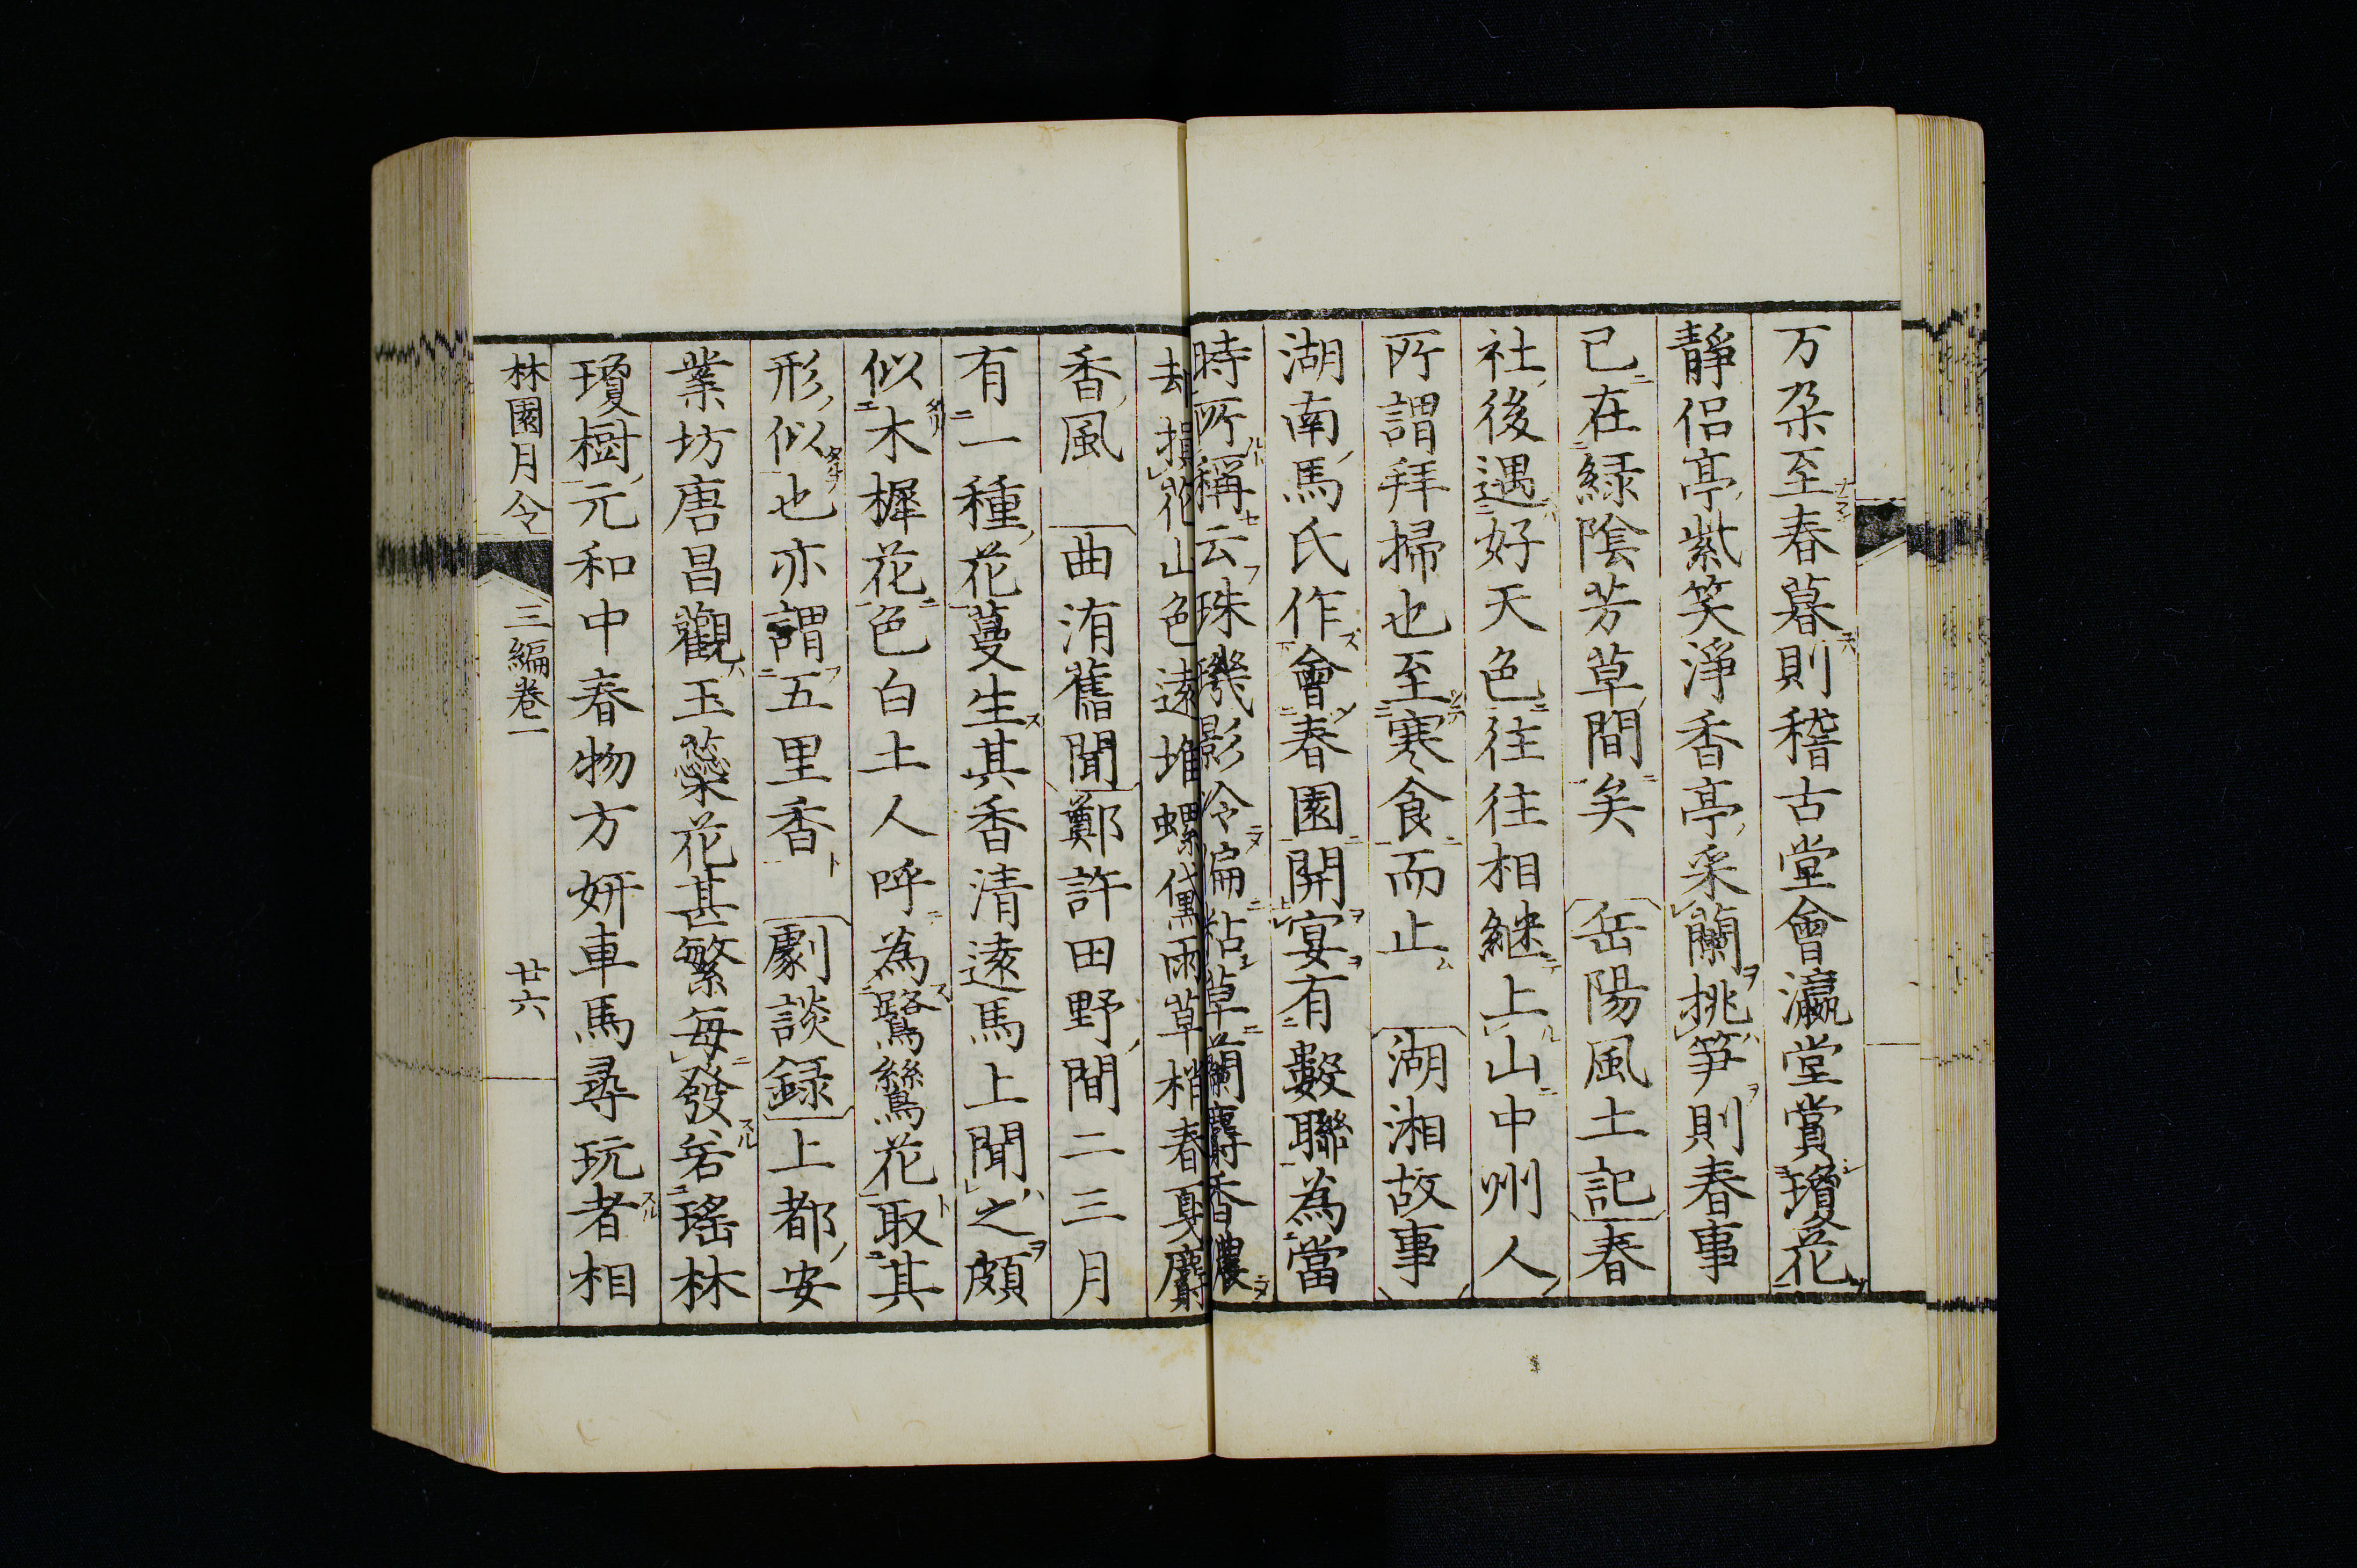 万朶至春暮則稽古堂會瀛堂賞瓊花
靜侶亭紫笑淨香亭采蘭挑笋則春事
已在緑陰芳草間矣　岳陽風土記春
社後遇好天色往往相継上山中州人
所謂拜掃也至寒食而止　湖湘故事
湖南馬氏作會春園開宴有數聯為當
時所稱云珠璣影冷偏粘草蘭麝香濃
却損花山色遠堆螺黛雨草梢春戛麝
香風　曲洧舊聞鄭許田野間二三月
有一種花蔓生其香清遠馬上聞之頗
似木樨花色白土人呼為鷺鷥花取其
形似也亦謂五里香　劇談録上都安
業坊唐昌觀玉蘂花甚繁每發若瑤林
瓊樹元和中春物方妍車馬尋玩者相
林園月令　三編卷一　廿六